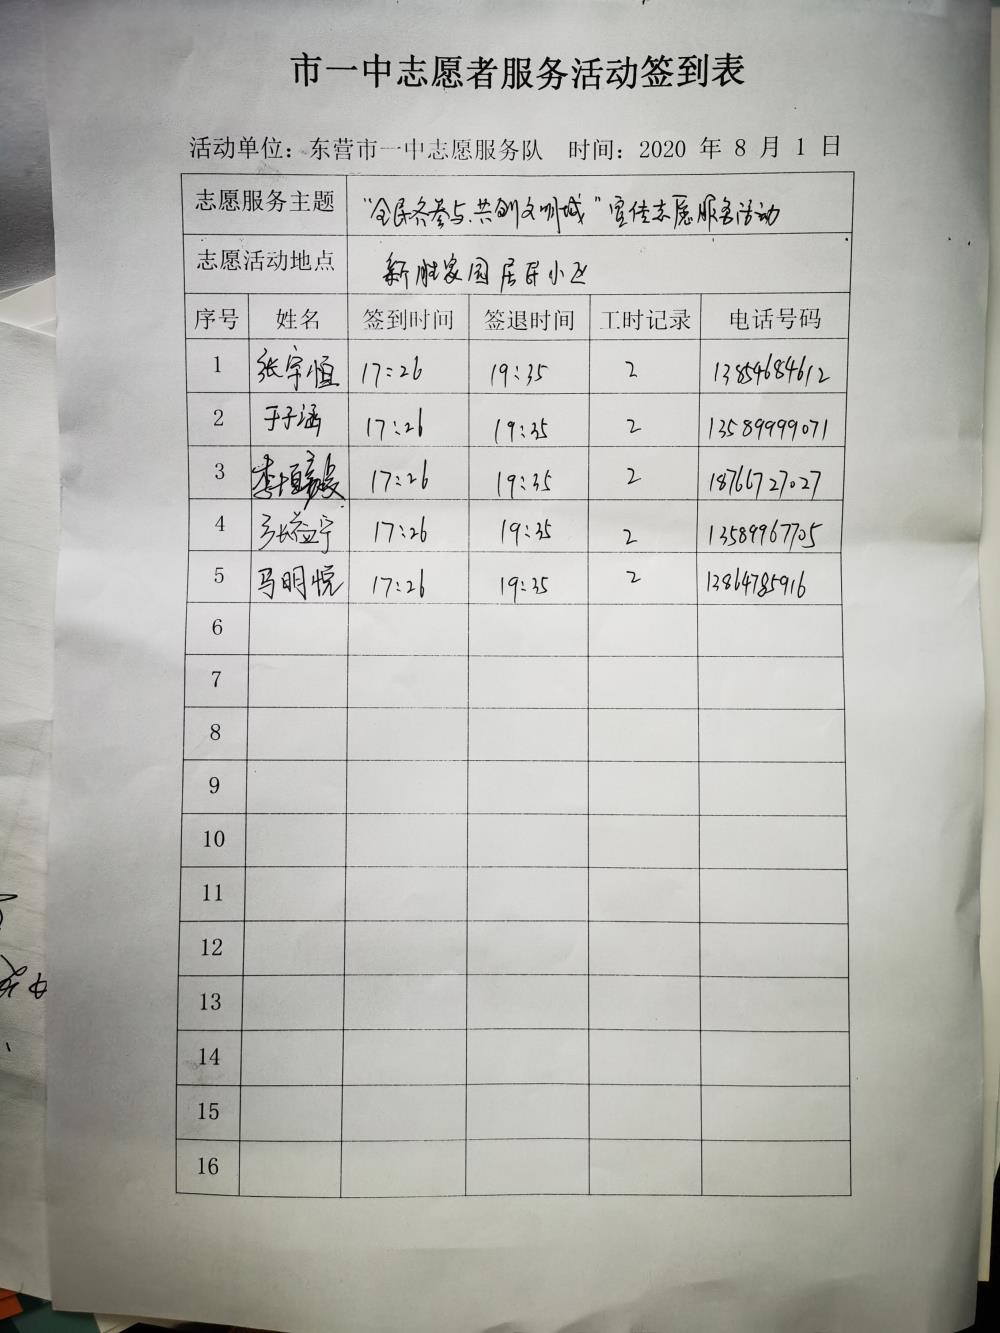 市一中志愿者服务活动签到表
活动单位：东营市一中志愿服务队 时间：2020 年 8 月 1 日
志愿服务主题 “全民齐参与,共创文明城”宣传志愿服务活动
志愿活动地点 新胜家园居民小区
序号 姓名 签到时间 签退时间 工时记录 电话号码
1 张宇恒 17:26 19:35 2 13854684612
2 于子涵 17:26 19:35 2 13589999071
3 李恒毅 17:26 19:35 2 18766727027
4 张益宁 17:26 19:35 2 13589967705
5 马明悦 17:26 19:35 2 13864785916
6
7
8
9
10
11
12
13
14
15
16